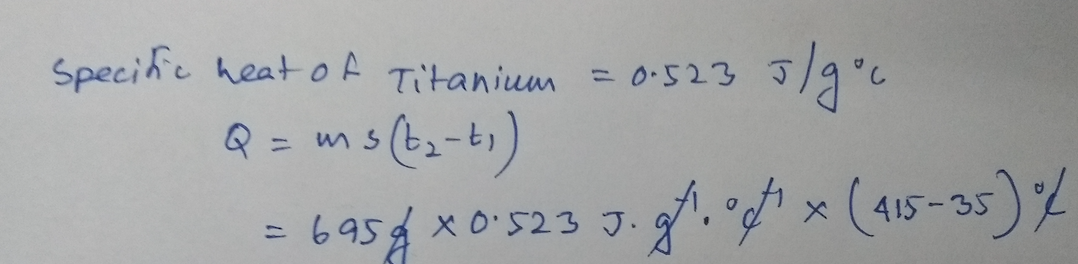 Specific heat of Titanium = 0.523 J/g°c
Q = ms(t₂-t₁)
= 695g × 0.523 J. g⁻¹. °c⁻¹ × (415-35)°c